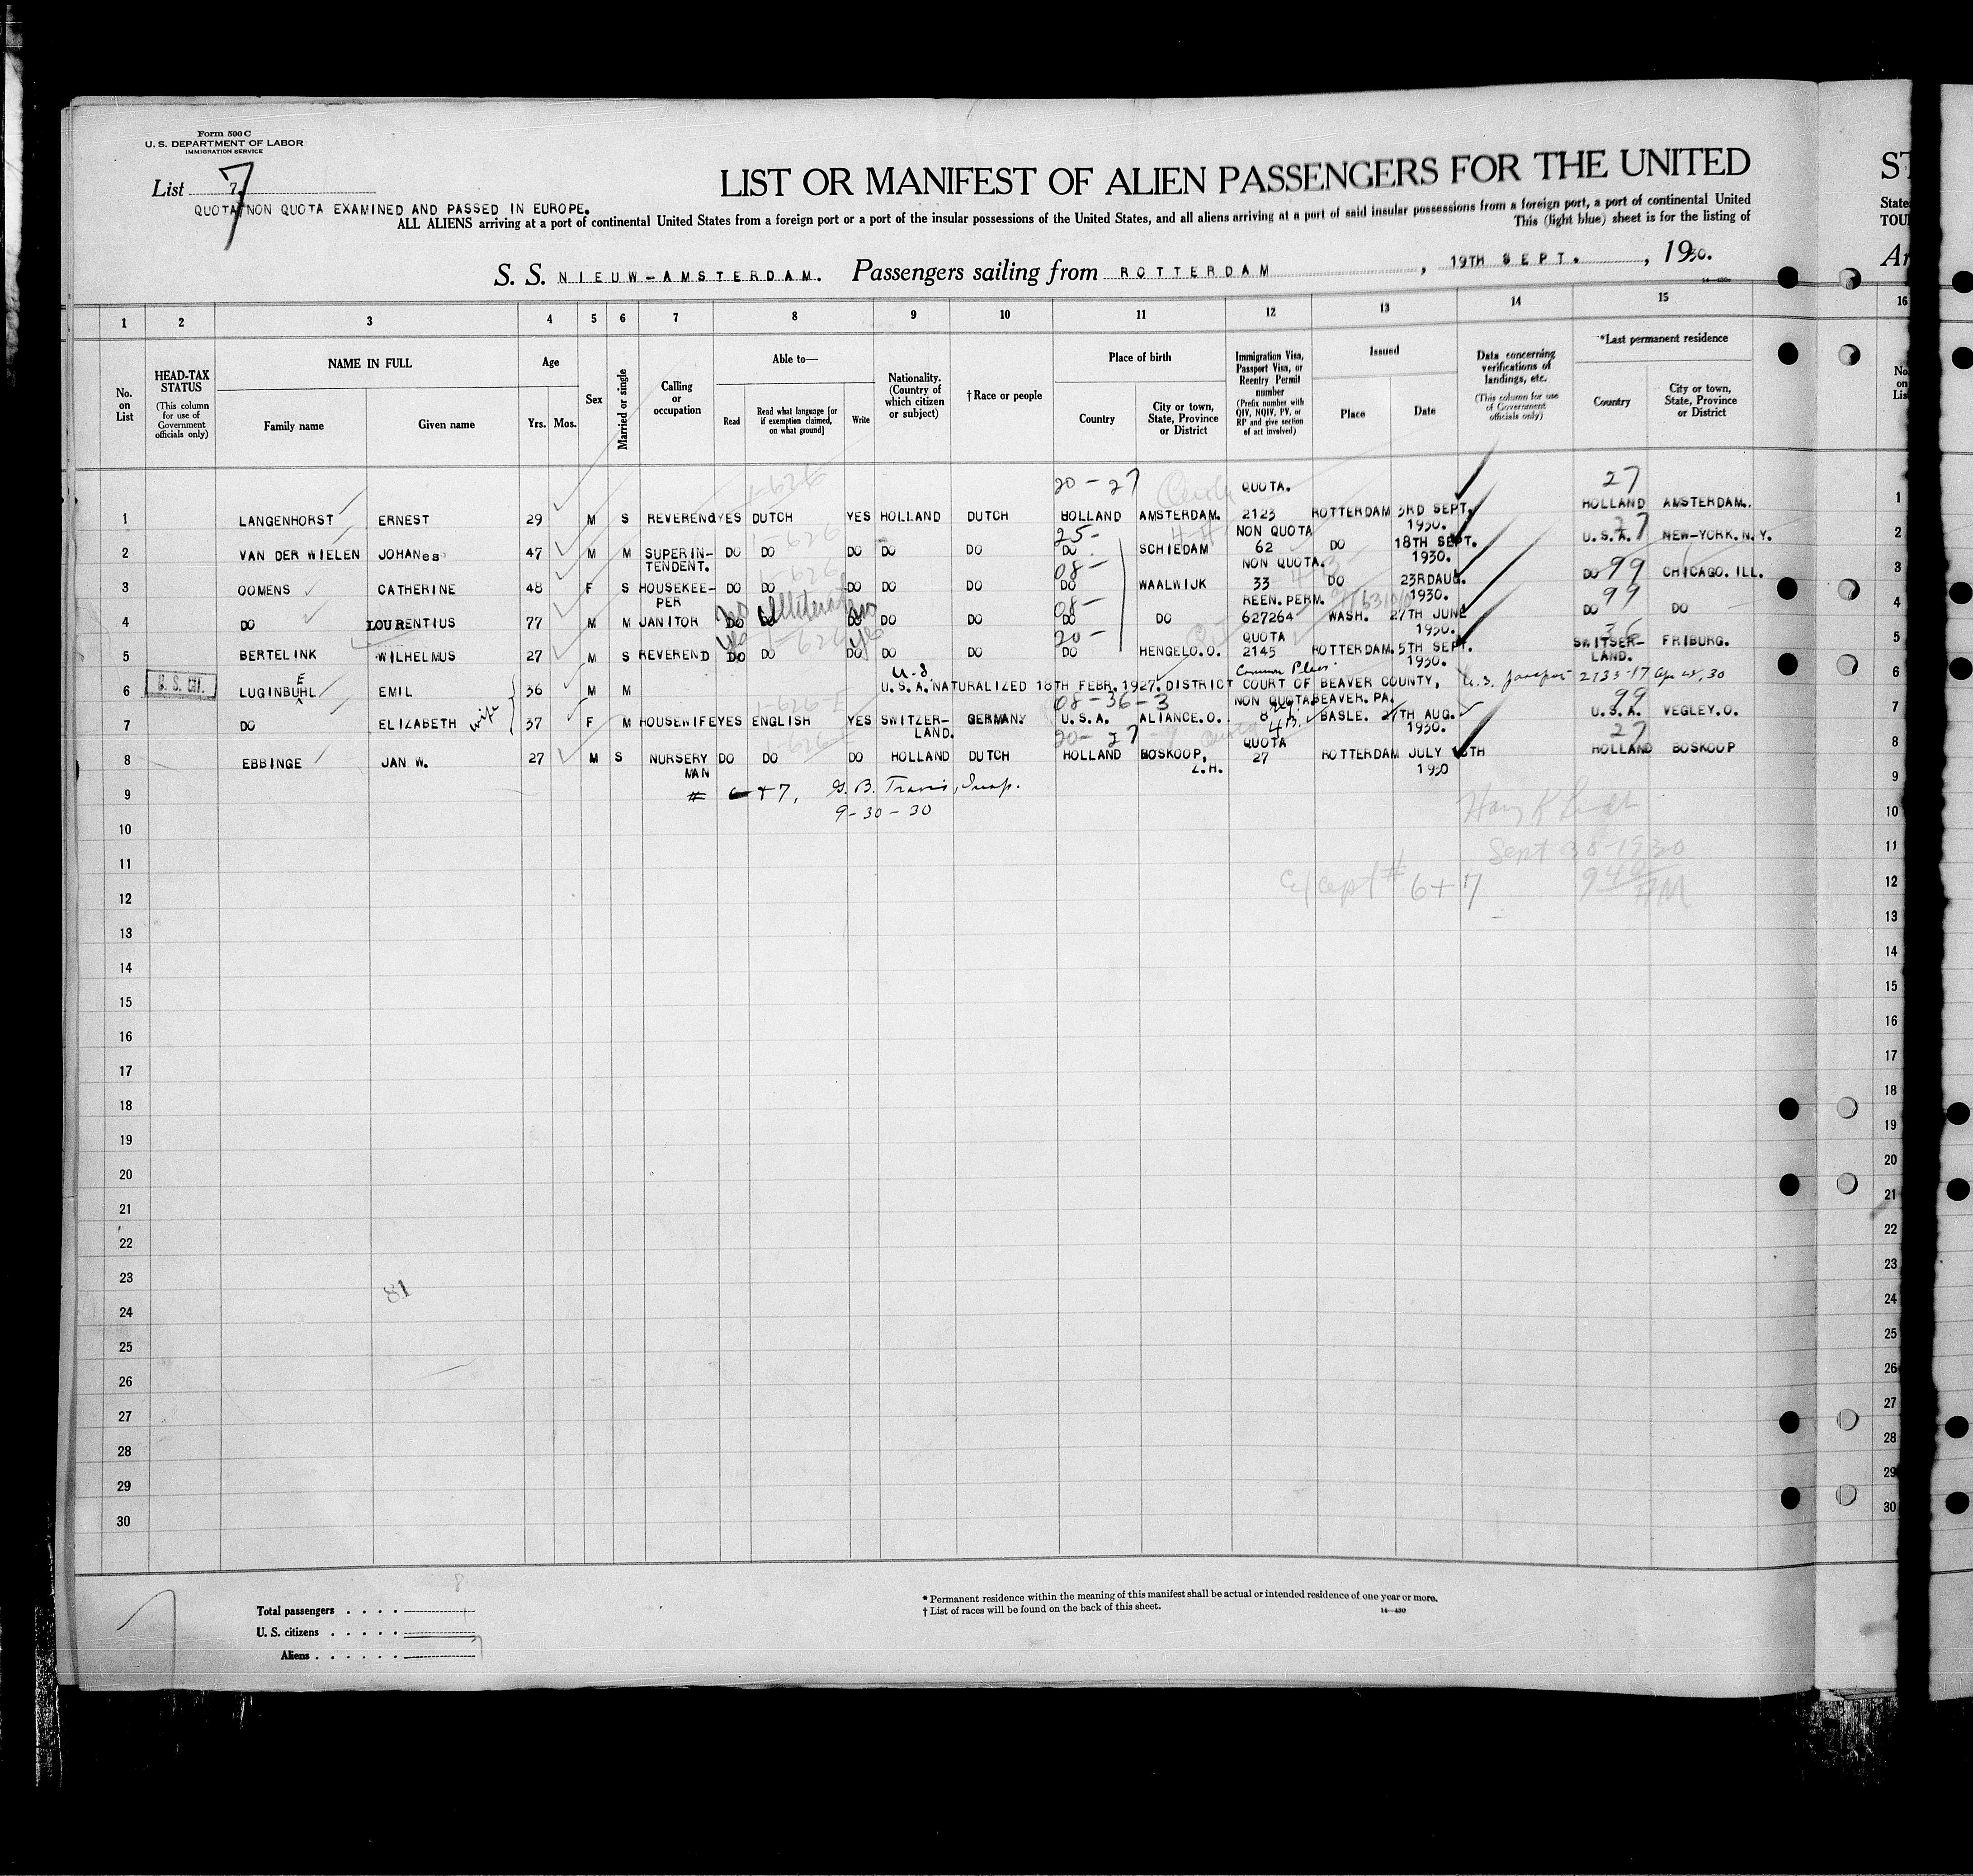 Form 500 C
U. S. DEPARTMENT OF LABOR
IMMIGRATION SERVICE
List 7. 7
QUOTA/NON QUOTA EXAMINED AND PASSED IN EUROPE.
LIST OR MANIFEST OF ALIEN PASSENGERS FOR THE UNITED
ALL ALIENS arriving at a port of continental United States from a foreign port or a port of the insular possessions of the United States, and all aliens arriving at a port of said insular possessions from a foreign port, a port of continental United
This (light blue) sheet is for the listing of
S. S. NIEUW-AMSTERDAM. Passengers sailing from ROTTERDAM, 19TH SEPT., 1930.
ST
State
TOU
Ar
1 2 3 4 5 6 7 8 9 10 11 12 13 14 15 16
No. on List
HEAD-TAX STATUS (This column for use of Government officials only)
NAME IN FULL Family name Given name
Age Yrs. Mos.
Sex
Married or single
Calling or occupation
Able to— Read Read what language [or if exemption claimed, on what ground] Write
Nationality. (Country of which citizen or subject)
†Race or people
Place of birth Country City or town, State, Province or District
Immigration Visa, Passport Visa, or Reentry Permit number (Prefix number with QIV, NQIV, PV, or RP and give section of act involved)
Issued Place Date
Data concerning verifications of landings, etc. (This column for use of Government officials only)
*Last permanent residence Country City or town, State, Province or District
20-27 QUOTA. 27
1 LANGENHORST ERNEST 29 M S REVEREND YES DUTCH YES HOLLAND DUTCH HOLLAND AMSTERDAM. 2123 ROTTERDAM 3RD SEPT. 1930. HOLLAND AMSTERDAM. 1
25- NON QUOTA 27
2 VAN DER WIELEN JOHANes 47 M M SUPERINTENDENT. DO DO DO DO DO DO SCHIEDAM 62 DO 18TH SEPT. 1930. U.S.A. NEW-YORK.N.Y. 2
08- NON QUOTA. 99
3 OOMENS CATHERINE 48 F S HOUSEKEE-PER DO DO DO DO DO DO WAALWIJK 33 DO 23RDAUG. 1930. DO CHICAGO.ILL. 3
no Illiterate no 08- REEN.PERM. 99
4 DO LOURENTIUS 77 M M JANITOR DO DO DO DO DO DO DO 627264 WASH. 27TH JUNE 1930. DO DO 4
yes yes 20- QUOTA 36
5 BERTELINK WILHELMUS 27 M S REVEREND DO DO DO DO DO DO HENGELO.O. 2145 ROTTERDAM. 5TH SEPT. 1930. SWITSER-LAND. FRIBURG. 5
U.S. CIT. U.S. Common Pleas
6 LUGINBUEHL EMIL 36 M M U.S.A. NATURALIZED 18TH FEBR.1927. DISTRICT COURT OF BEAVER COUNTY, BEAVER.PA. 6
08-36-3 NON QUOTA 99
7 DO ELIZABETH wife 37 F M HOUSEWIFE YES ENGLISH YES SWITZER-LAND. GERMAN U.S.A. ALIANCE.O. 8 BASLE. 27TH AUG. 1930. U.S.A. VEGLEY.O. 7
20-27 QUOTA 27
8 EBBINGE JAN W. 27 M S NURSERY MAN DO DO DO HOLLAND DUTCH HOLLAND BOSKOOP, Z.H. 27 ROTTERDAM JULY 1930 HOLLAND BOSKOOP 8
9 # 6+7, G. B. Travis, Insp. 9
9-30-30
10 10
11 Sept 30-1930 11
12 Except # 6+7 9 40 AM 12
13 13
14 14
15 15
16 16
17 17
18 18
19 19
20 20
21 21
22 22
23 23
81
24 24
25 25
26 26
27 27
28 28
29 29
30 30
8
Total passengers
U. S. citizens
Aliens
* Permanent residence within the meaning of this manifest shall be actual or intended residence of one year or more.
† List of races will be found on the back of this sheet.
14—430